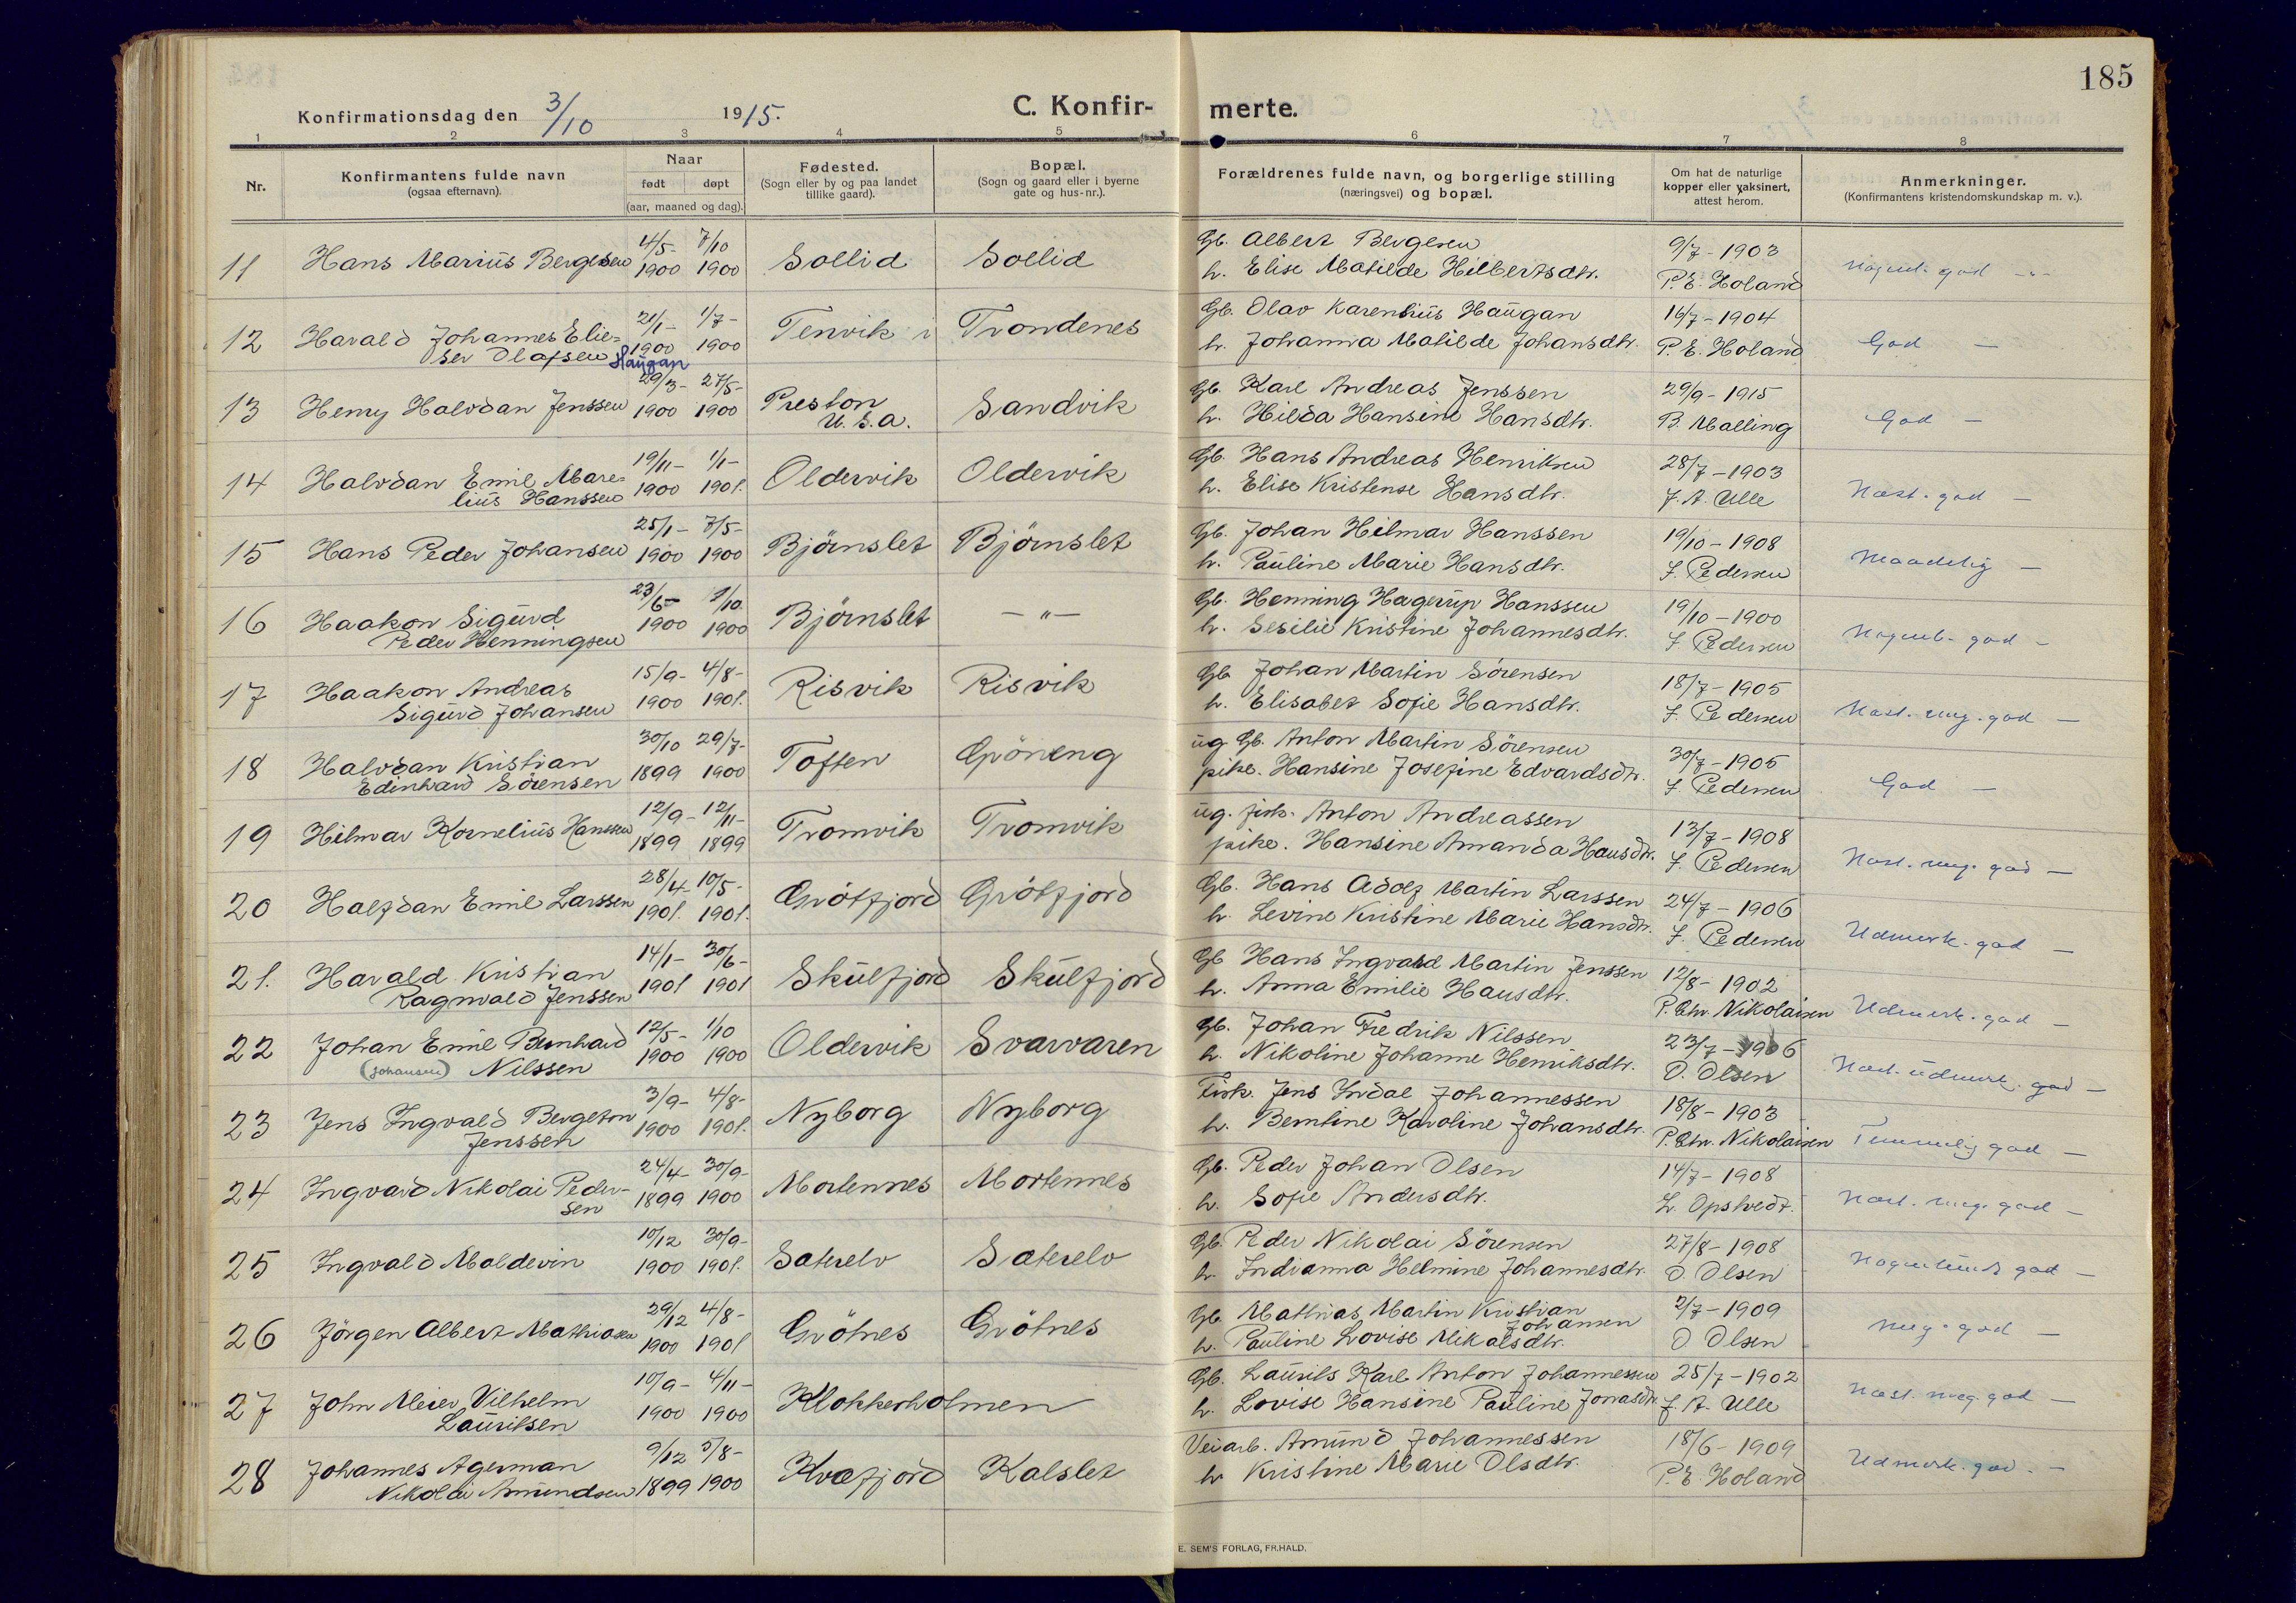 185
Konfirmationsdag den 3/10 1915.
C. Konfir-
merte.
1 2 3 4 5 6 7 8
Nr.
Konfirmantens fulde navn
(ogsaa efternavn).
Naar
født døpt
(aar, maaned og dag).
Fødested.
(Sogn eller by og paa landet
tillike gaard).
Bopæl.
(Sogn og gaard eller i byerne
gate og hus-nr.).
Forældrenes fulde navn, og borgerlige stilling
(næringsvei) og bopæl.
Om hat de naturlige
kopper eller vaksinert,
attest herom.
Anmerkninger.
(Konfirmantens kristendomskundskap m. v.).
11 Hans Marius Bergesen 4/5- 1900 7/10 1900 Sollid Sollid
Gb. Albert Bergesen 9/7-1903
h. Elise Matilde Hilbertsdtr. P.E. Holand Nogenl. god -"-
12 Harald Johannes Elie- 21/1- 1900 1/7- 1900 Tenvik i Trondenes
ser Olafsen Haugan
Gb. Olav Karenlius Haugan 16/7-1904
h. Johanna Matilde Johansdtr. P.E. Holand God -
13 Henry Halvdan Jenssen 29/3- 1900 27/5- 1900 Preston Sandvik
U.S.a.
Gb. Karl Andreas Jenssen 29/9-1915
h. Hilda Hansine Hansdtr. B. Malling God -
14 Halvdan Emil Mare- 19/11- 1900 1/1- 1901. Oldervik Oldervik
lius Hanssen
Gb. Hans Andreas Henriksen 28/7-1903
h. Elise Kristense Hansdtr. J.A. Ulle Næst. god -
15 Hans Peder Johansen 25/1- 1900 7/5- 1900 Björnslet Björnslet
Gb. Johan Hilmar Hanssen 19/10-1908
h. Pauline Marie Hansdtr. J. Pedersen Maadelig -
16 Haakon Sigurd 23/6- 1900 7/10. 1900 Björnslet -"-
Peder Henningsen
Gb. Henning Hagerup Hanssen 19/10-1900
h. Sesilie Kristine Johannesdtr. J. Pedersen Nogenl. god -
17 Haakon Andreas 15/9- 1900 4/8- 1901. Risvik Risvik
Sigurd Johansen
Gb Johan Martin Sörensen 18/7-1905
h. Elisabet Sofie Hansdtr. J. Pedersen Næst. meg. god -
18 Halvdan Kristian 30/10 1899 29/7- 1900 Toften Gröneng
Edinhard Sörensen
ug Gb. Anton Martin Sörensen 30/7-1905
pike. Hansine Josefine Edvardsdtr. J. Pedersen God -
19 Hilmar Kornelius Hanssen 12/9- 1899 12/11- 1899 Tromvik Tromvik
ug. fisk. Anton Andreassen 13/7-1908
pike. Hansine Amanda Hansdtr. J. Pedersen Næst. meg. god -
20 Halfdan Emil Larssen 28/4- 1901. 10/5- 1901. Grötfjord Grötfjord
Gb. Hans Adolf Martin Larssen 24/7-1906
h. Levine Kristine Marie Hansdtr. J. Pedersen Udmerk. god -
21. Harald Kristian 14/1- 1901 30/6- 1901 Skulfjord Skulfjord
Ragnvald Jenssen
Gb Hans Ingvald Martin Jenssen 12/8-1902
h. Anna Emilie Hansdtr. P. Chr. Nikolaisen Udmerk. god -
22 Johan Emil Bernhard 12/5- 1900 1/10 1900 Oldervik Svarvaren
(Johansen) Nilssen
Gb. Johan Fredrik Nilssen 23/7-1906
h. Nikoline Johanne Henriksdtr. O. Olsen Næst. udmerk. god -
23 Jens Ingvald Bergeton 3/9- 1900 4/8- 1901. Nyborg Nyborg
Jenssen
Fisk. Jens Indal Johannessen 18/8-1903
h. Berntine Karoline Johansdtr. P. Chr. Nikolaisen Temmelig god -
24 Ingvard Nikolai Peder- 24/4- 1899 30/9- 1900 Mortennes Mortennes
sen
Gb. Peder Johan Olsen 14/7-1908
h. Sofie Andersdtr. L. Opstvedt. Næst. meg. god -
25 Ingvald Moldevin 10/12 1900 30/9- 1901. Saterelv Saterelv
Gb. Peder Nikolai Sörensen 27/8-1908
h. Indianna Helmine Johannesdtr. O. Olsen Nogenlunds god -
26 Jörgen Albert Mathiasen 29/12 1900 4/8- 1901 Grötnes Grötnes
Gb. Mathias Martin Kristian 2/7-1909
Johansen
h. Pauline Lovise Mikalsdtr. O Olsen Meg. god -
27 John Meier Vilhelm 10/9- 1900 4/11- 1900 Klokkerholmen
Lauritsen
Gb. Laurits Karl Anton Johannessen 25/7-1902
h. Lovise Hansine Pauline Jonasdtr. J.A. Ulle Næst. meg. god -
28 Johannes Agerman 9/12 1899 5/8- 1900 Kvæfjord Kalslet
Nikolai Amundsen
Veiarb. Amund Johannessen 18/6-1909
h Kristine Marie Olsdtr. P.E. Holand Udmerk. god. -
E. SEM'S FORLAG, FR.HALD.